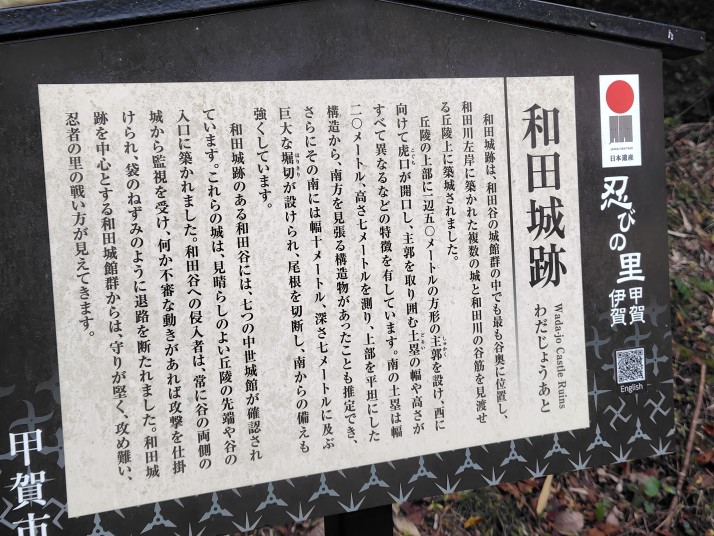 日本遺産
忍びの里
甲賀
伊賀
English
和田城跡
Wada-jo Castle Ruins
わだじょうあと
和田城跡は、和田谷の城館群の中でも最も谷奥に位置し、
和田川左岸に築かれた複数の城と和田川の谷筋を見渡せ
る丘陵上に築城されました。
丘陵の上部に一辺五〇メートルの方形の主郭を設け、西に
向けて虎口が開口し、主郭を取り囲む土塁の幅や高さが
すべて異なるなどの特徴を有しています。南の土塁は幅
二〇メートル、高さ七メートルを測り、上部を平坦にした
構造から、南方を見張る構造物があったことも推定でき、
さらにその南には幅十メートル、深さ七メートルに及ぶ
巨大な堀切が設けられ、尾根を切断し、南からの備えも
強くしています。
和田城跡のある和田谷には、七つの中世城館が確認され
ています。これらの城は、見晴らしのよい丘陵の先端や谷の
入口に築かれました。和田谷への侵入者は、常に谷の両側の
城から監視を受け、何か不審な動きがあれば攻撃を仕掛
けられ、袋のねずみのように退路を断たれました。和田城
跡を中心とする和田城館群からは、守りが堅く、攻め難い、
忍者の里の戦い方が見えてきます。
甲賀市